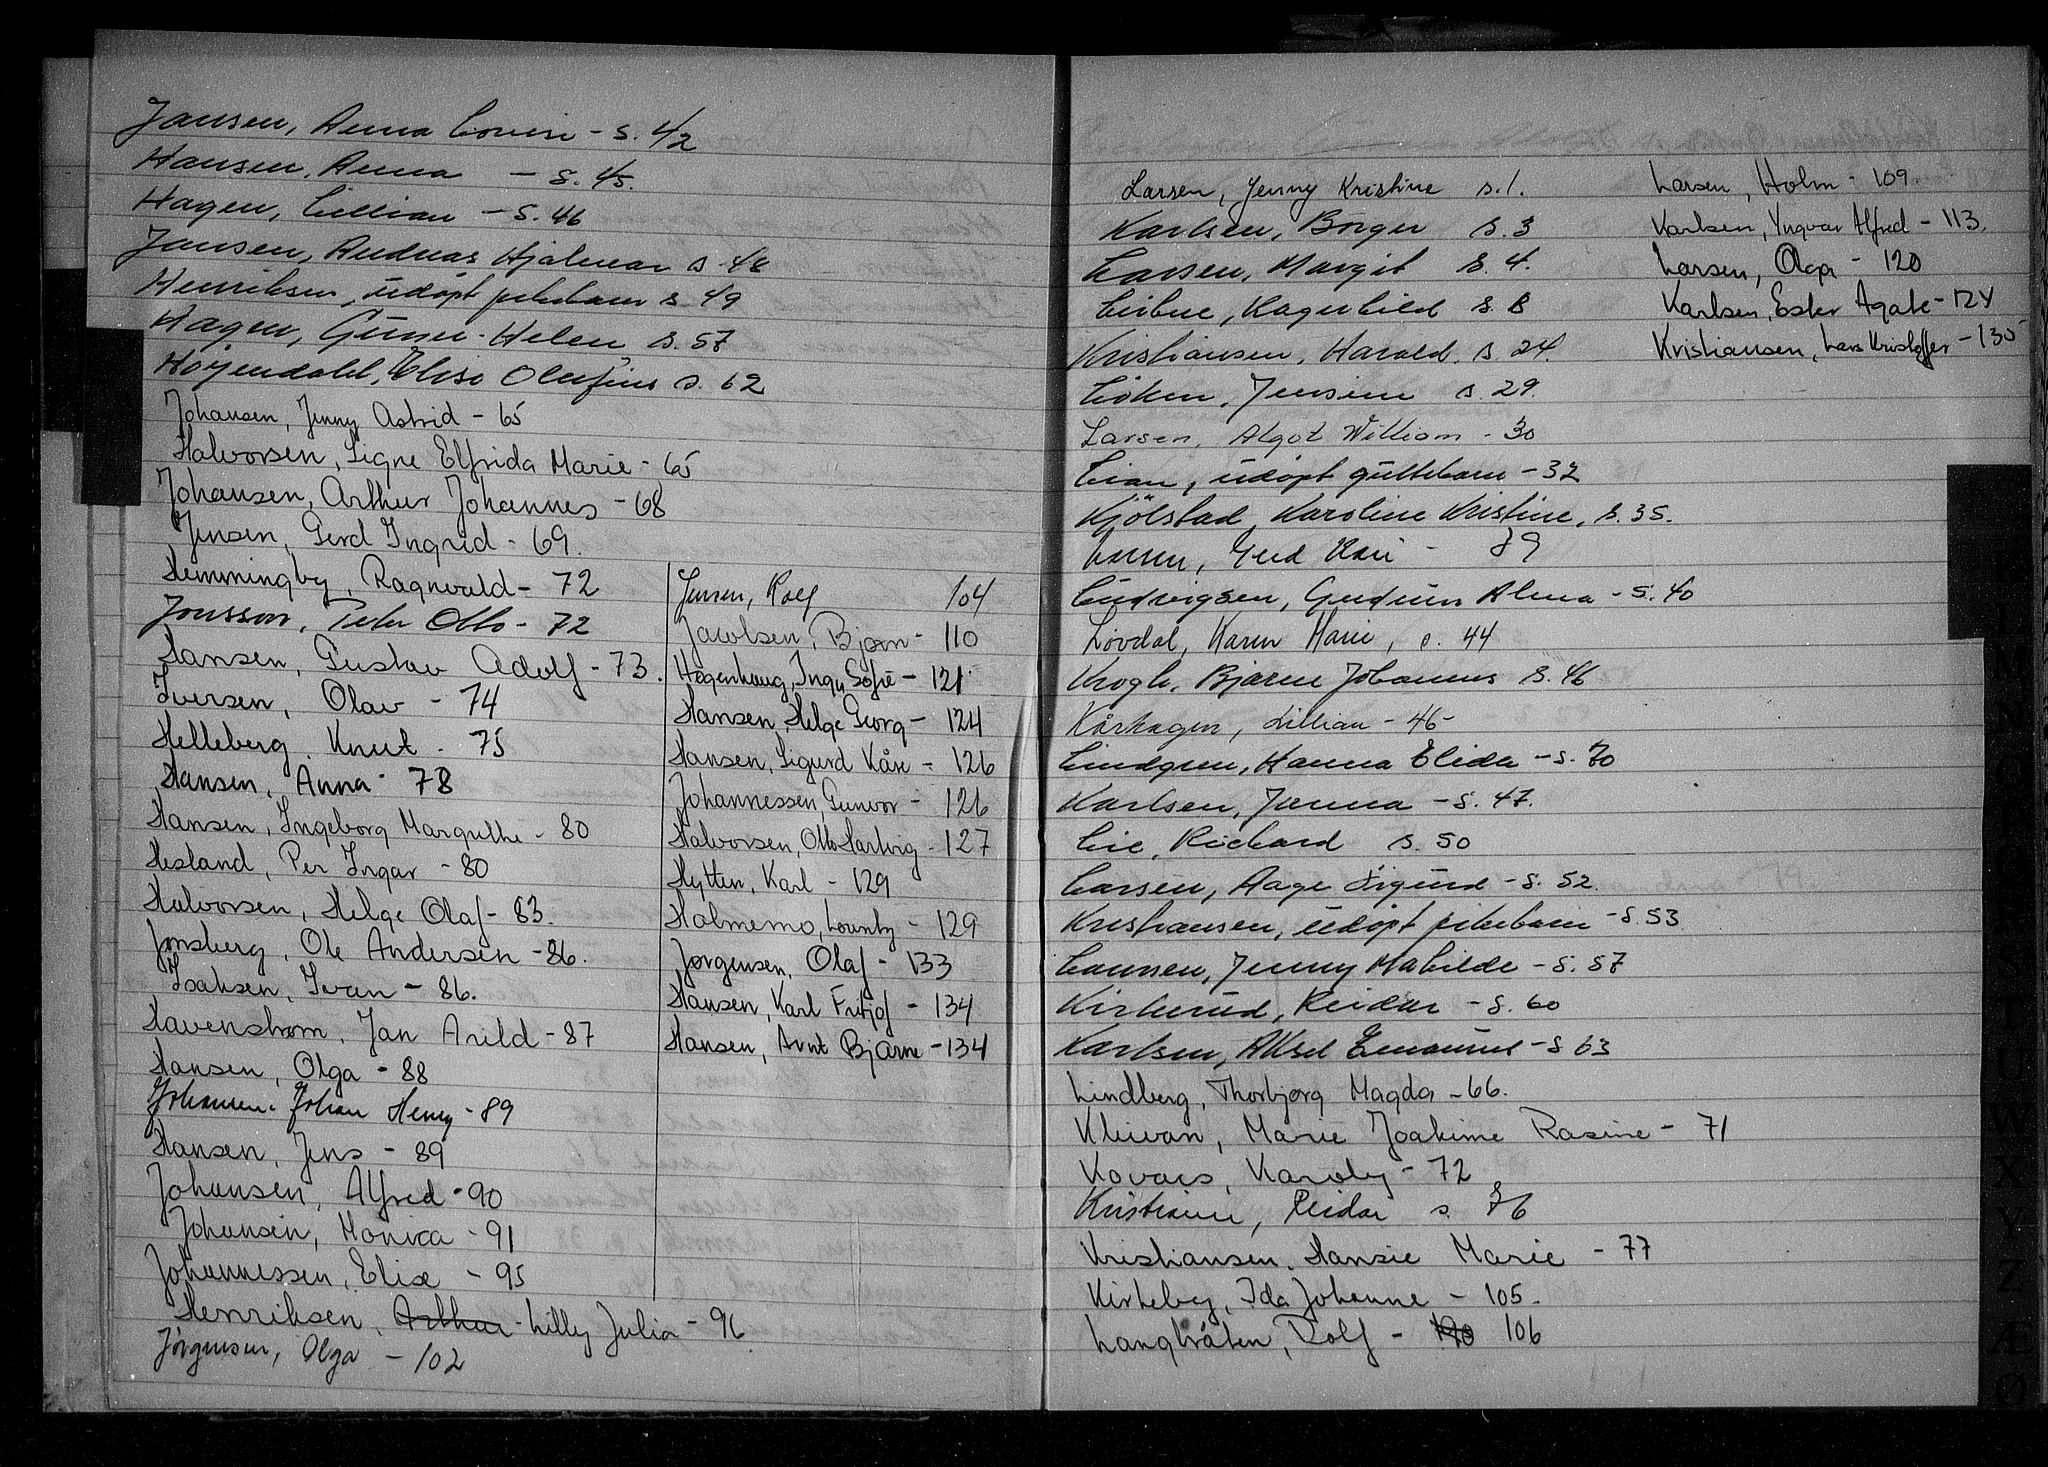 Jansen, Anna Lovise - s. 42
Hansen, Anna - s. 45.
Hagen, Lillian - s. 46
Jansen, Andreas Hjalmar s. 48
Henriksen, udøpt pikebarn s. 49
Hagen, Gunn-Helen s. 57
Høyendahl, Elise Olufine s. 62
Johansen, Jenny Astrid - 65
Halvorsen, Signe Elfrida Marie - 65
Johansen, Arthur Johannes - 68
Jensen, Gerd Ingrid - 69.
Hemmingby, Ragnvald - 72
Jonsson, Peter Otto - 72
Hansen, Gustav Adolf - 73.
Iversen, Olav - 74
Helleberg, Knut - 75
Hansen, Anna - 78
Hansen, Ingeborg Margrethe - 80
Hesland, Per Ingar - 80
Halvorsen, Helge Olaf - 83.
Jonsberg, Ole Andersen - 86.
Isaksen, Ivan - 86.
Havenstrøm, Jan Arild - 87
Hansen, Olga - 88
Johansen, Johan Henry - 89
Hansen, Jens - 89
Johansen, Alfred - 90
Johansen, Monica - 91
Johannessen, Elise - 95
Henriksen, Arthur - Lilly Julia - 96
Jørgensen, Olga - 102
Jensen, Rolf 104
Jacobsen, Bjørn - 110
Høgenhaug, Inga Sofie - 121
Hansen, Helge Georg - 124
Hansen, Sigurd Kåre - 126
Johannessen, Gunvor - 126
Halvorsen, Otto Hartvig - 127
Hytten, Karl - 129
Holmemo, - 129
Jørgensen, Olaf - 133
Hansen, Karl Fritjof - 134
Hansen, Arnt Bjarne - 134
Larsen, Jenny Kristine s. 1.
Karlsen, Borger s. 3
Larsen, Margit s. 4.
Lirbue, Ragnhild s. 8
Kristiansen, Harald s. 24.
Löken, Jensine s. 29.
Larsen, Algot William - 30
Lian, udøpt guttebarn - 32
Kjölstad, Karoline Kristine, s. 35.
Larsen, Gerd Kari - 39
Ludvigsen, Gudrun Alma - s. 40
Lövdal, Karen Marie, s. 44
Krogh, Bjarne Johannes s. 46
Kårhagen, Lillian - 46 -
Lindgren, Hanna Elida - s. 70
Karlsen, Janna - s. 47.
Lie, Richard s. 50
Larsen, Aage Sigurd - s. 52.
Kristiansen, udøpt pikebarn - s. 53
Laursen, Jenny Mathilde - s. 57
Kirkerud, Reidar - s. 60
Karlsen, Aksel Emanuel - s 63
Lindberg, Thorbjørg Magda - 66.
Kleivan, Marie Joakime Rasine - 71
Kovacs, Karoly - 72
Kristiansen, Reidar s. 76
Kristiansen, Hansie Marie - 77
Kirkeby, Ida Johanne - 105.
Langbråten, Rolf - 190 106
Larsen, Holm - 109.
Karlsen, Yngvar Alfred - 113.
Larsen, Olga - 120
Karlsen, Ester Agate - 124
Kristiansen, Lars Kristoffer - 135